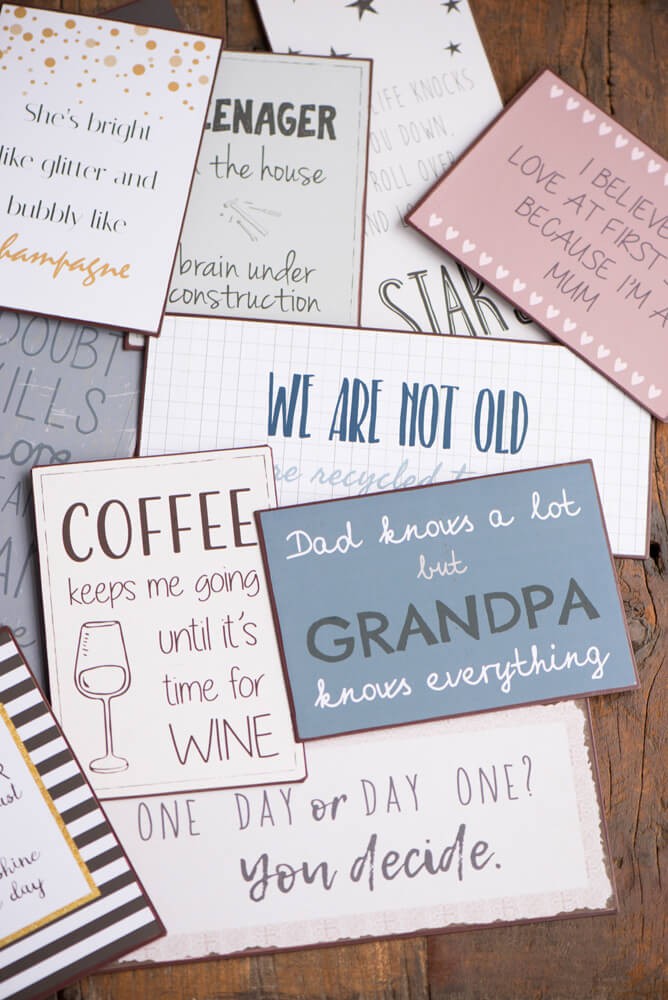 She's bright
like glitter and
bubbly like
champagne
ENAGER
the house
brain under
construction
LIFE KNOCKS
YOU DOWN,
ROLL OVER
AND
STARS
I BELIEVE
LOVE AT FIRST
BECAUSE I'M A
MUM
DOUBT
KILLS
WE ARE NOT OLD
recycled
COFFEE
keeps me going
until it's
time for
WINE
Dad knows a lot
but
GRANDPA
knows everything
ONE DAY or DAY ONE?
You decide.
day